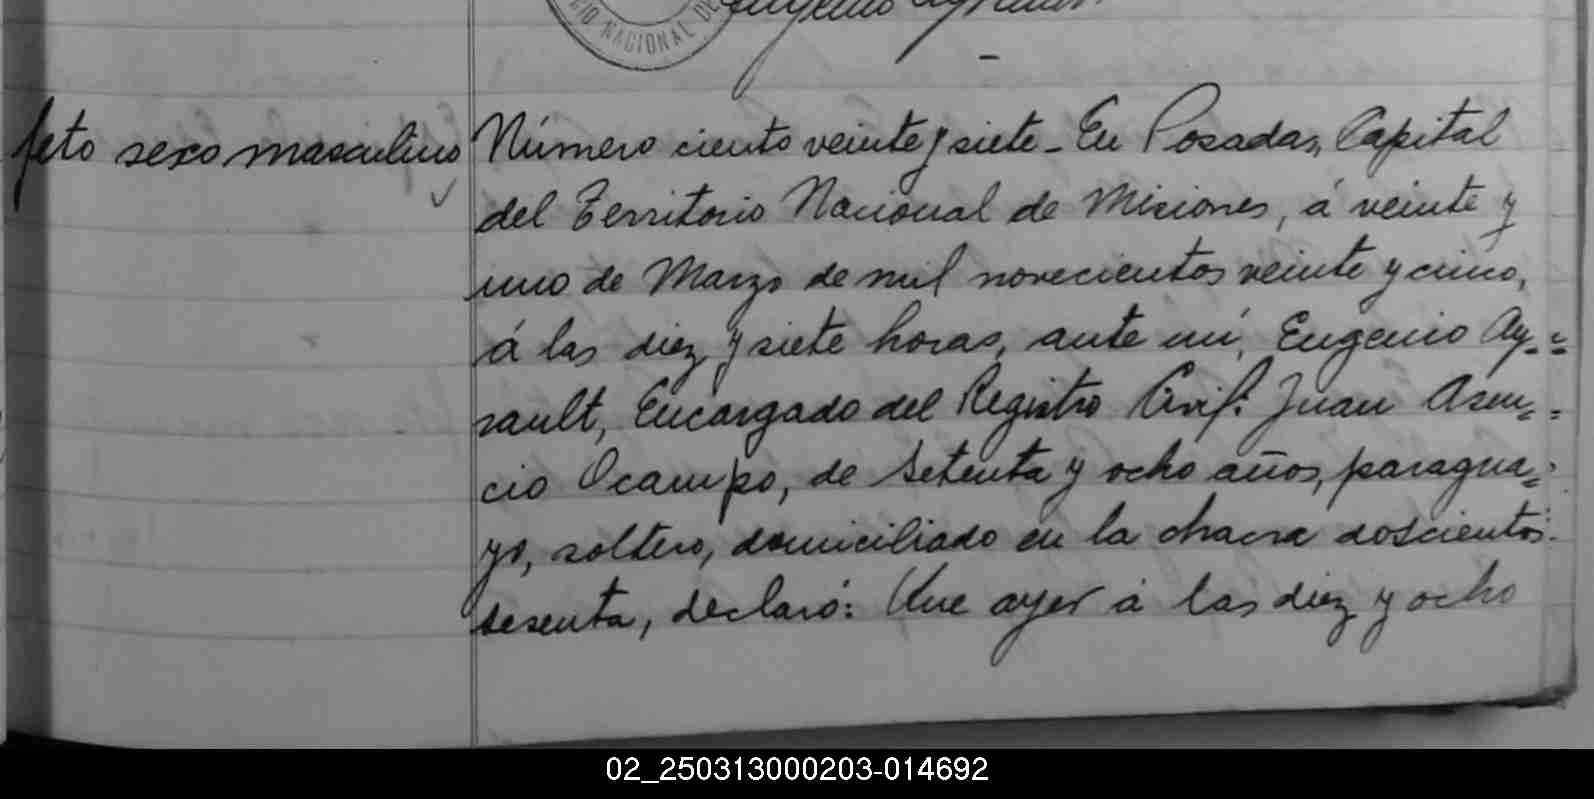 CIO NACIONAL DE
Eugenio Ayrault
feto sexo masculino
Número ciento veinte y siete - En Posadas, Capital
del Territorio Nacional de Misiones, á veinte y
uno de Marzo de mil novecientos veinte y cinco,
á las diez y siete horas, ante mí, Eugenio Ay-
rault, Encargado del Registro Civil: Juan Asen-
cio Ocampo, de setenta y ocho años, paragua-
yo, soltero, domiciliado en la chacra doscientos
sesenta, declaró: Que ayer á las diez y ocho
02_250313000203-014692